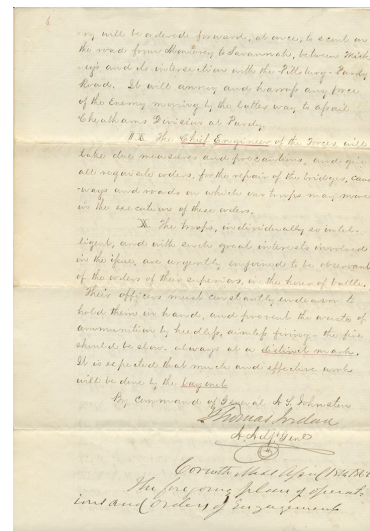 6
ry will be ordered forward, at once, to scout on
the road from Monterey to Savannah, between Mick-
ey's and its intersection with the Pittsburg-Purdy
Road. It will annoy and harrass any force
of the Enemy moving by the latter way to assail
Cheathams Division at Purdy
The Chief Engineer of the Forces will
take due measures and precautions, and give
all requisite orders, for the repair of the bridges, cause-
ways and roads on which our troops may move
in the execution of these orders.
The troops, individually so intel-
ligent, and with such great interests involved
in the issue, are urgently enjoined to be observant
of the orders of their superiors, in the hour of battle.
Their officers must constantly endeavor to
hold them in hand, and prevent the waste of
ammunition by heedless, aimless firing - the fire
should be slow always at a distinct mark.
It is expected that much and effective work
will be done by the bayonet
By command of General A S Johnston
Thomas Jordan
A. Adjt Genl
Corinth Miss April
The foregoing plans of operat-
ions and Orders of Engagement